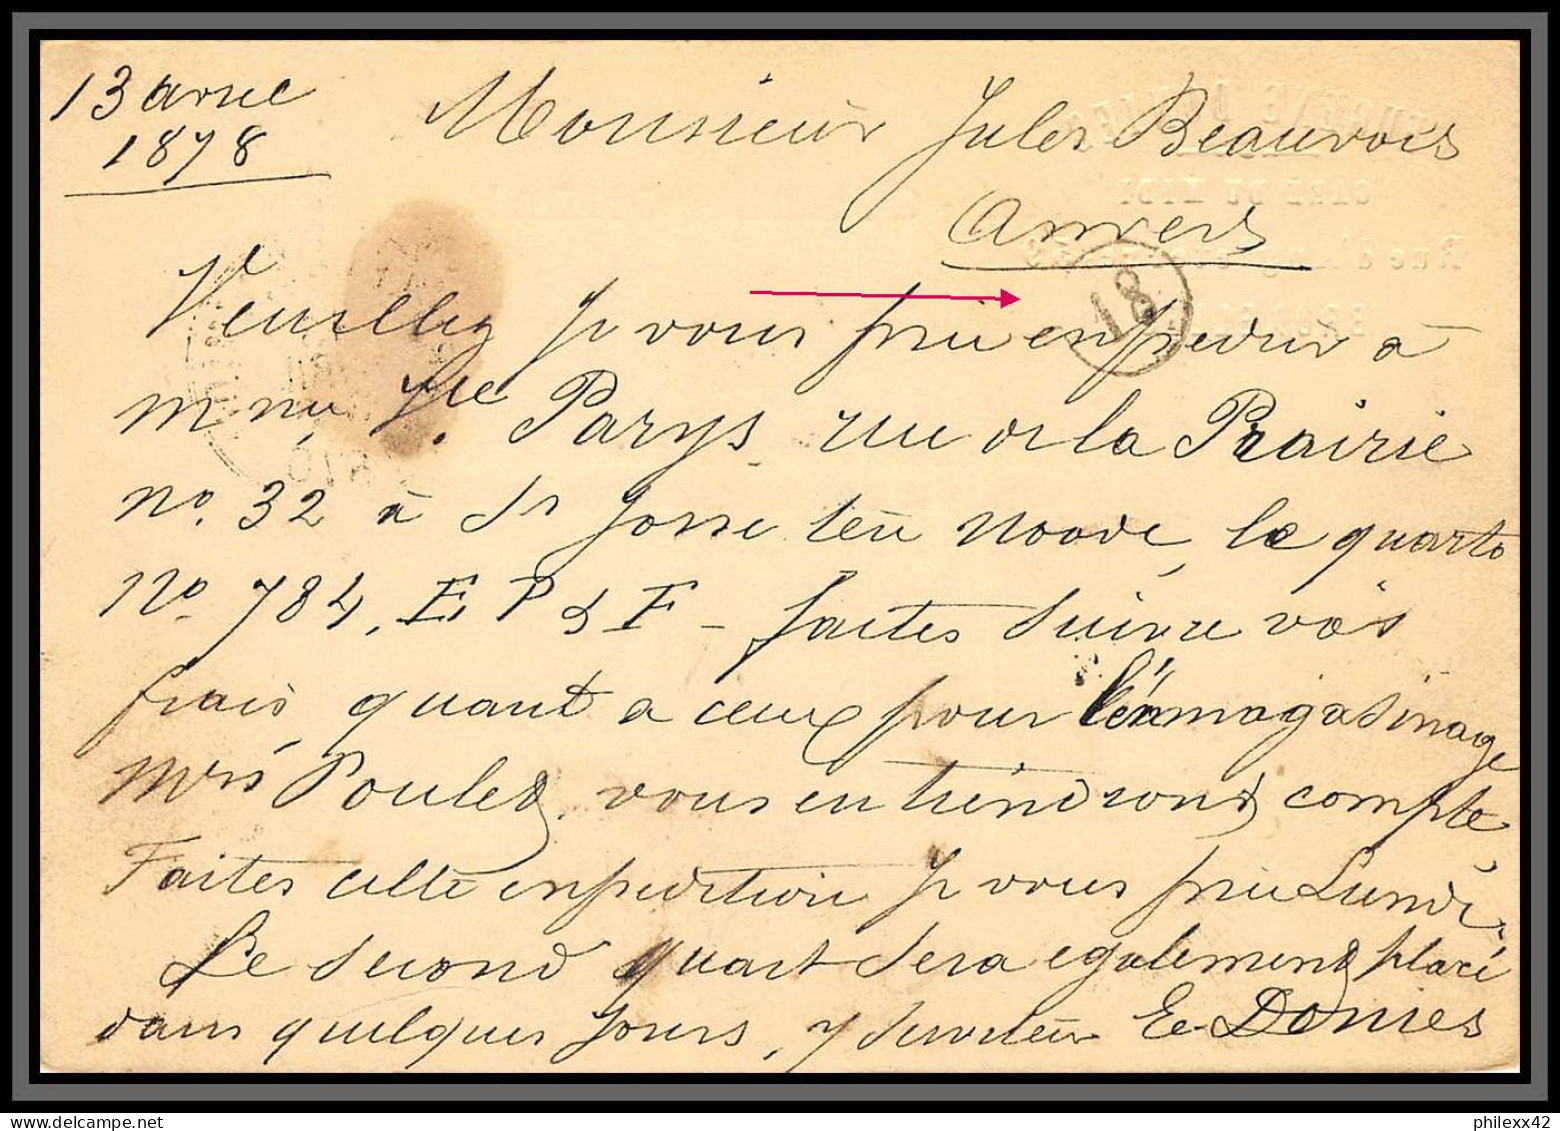 13 avril
1878
Monsieur Jules Beauvois
Anvers
18
Veuillez je vous prie expedier à
Parys rue de la Prairie
no. 32 à St Josse ten Noode, le quarto
No. 784, E P & F - faites suivre vos
frais, quant a ceux pour l'emmagasinage
Mrs Poulet vous en tiendront compte
Faites cette expedition je vous prie Lundi
Le second quart sera egalement placé
dans quelques jours, y serviteur
philexx42